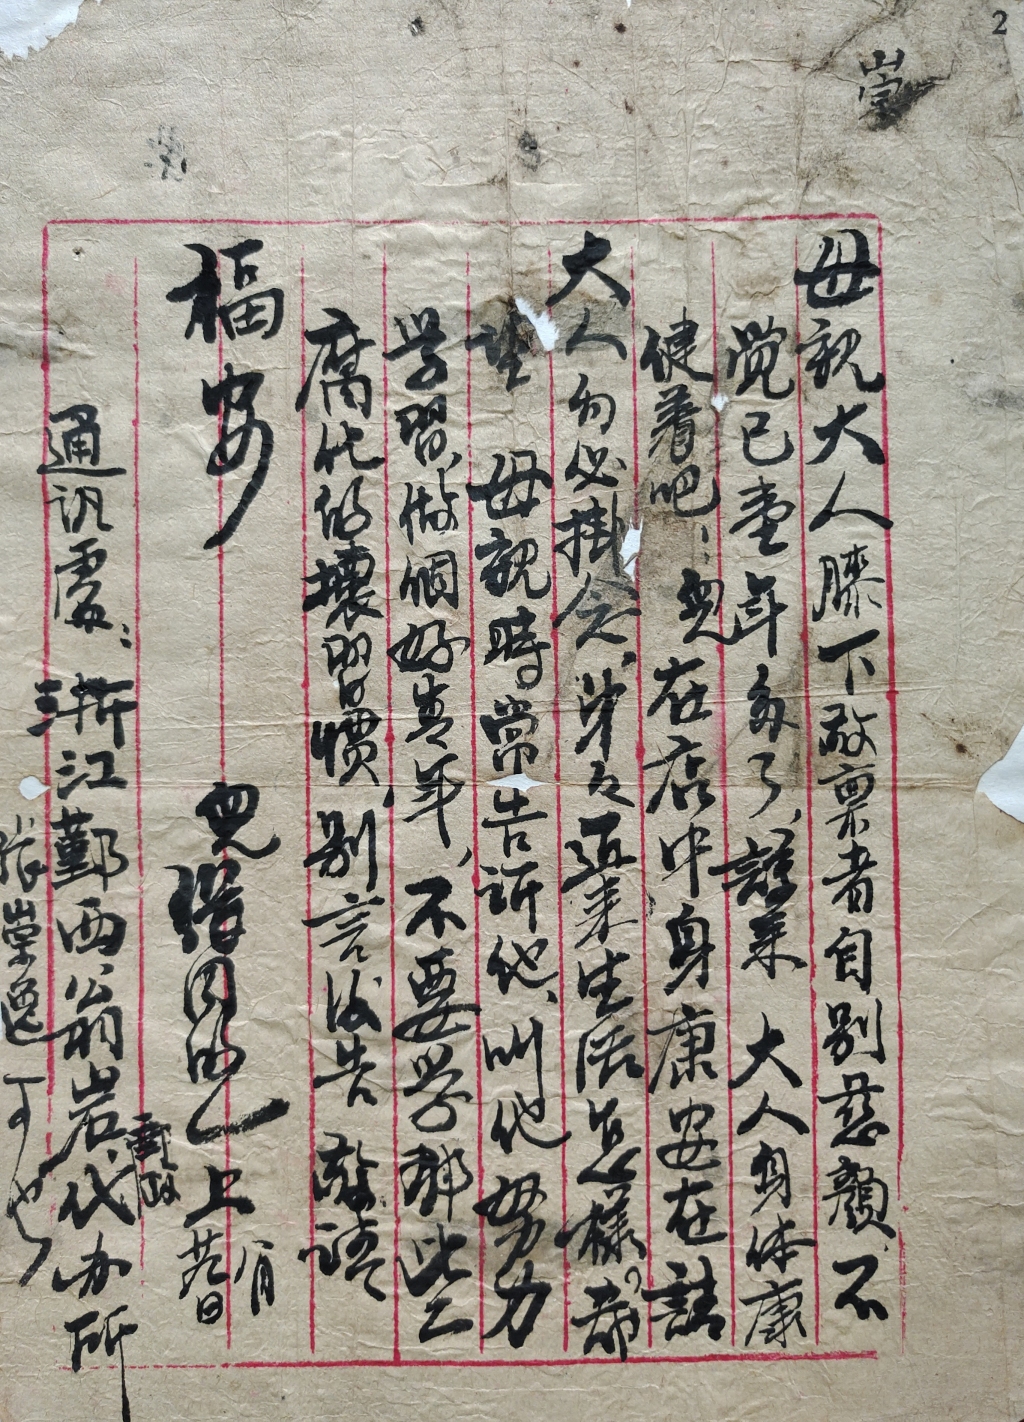 2
崇
母親大人膝下敬禀者自别慈顏、不
覺已壹年多了、諒來 大人身体康
健着吧：兒在店中身康安在請
大人勿必掛念、弟々近来生活怎樣？希
望 母親時常告訴他、叫他努力
学習、做個好青年、不要学那些
腐化的壞習慣、别言後告 敬請
福安
兒 上
八月
日
通讯處：浙江鄞西翁岩代办所
郵政
張崇逸